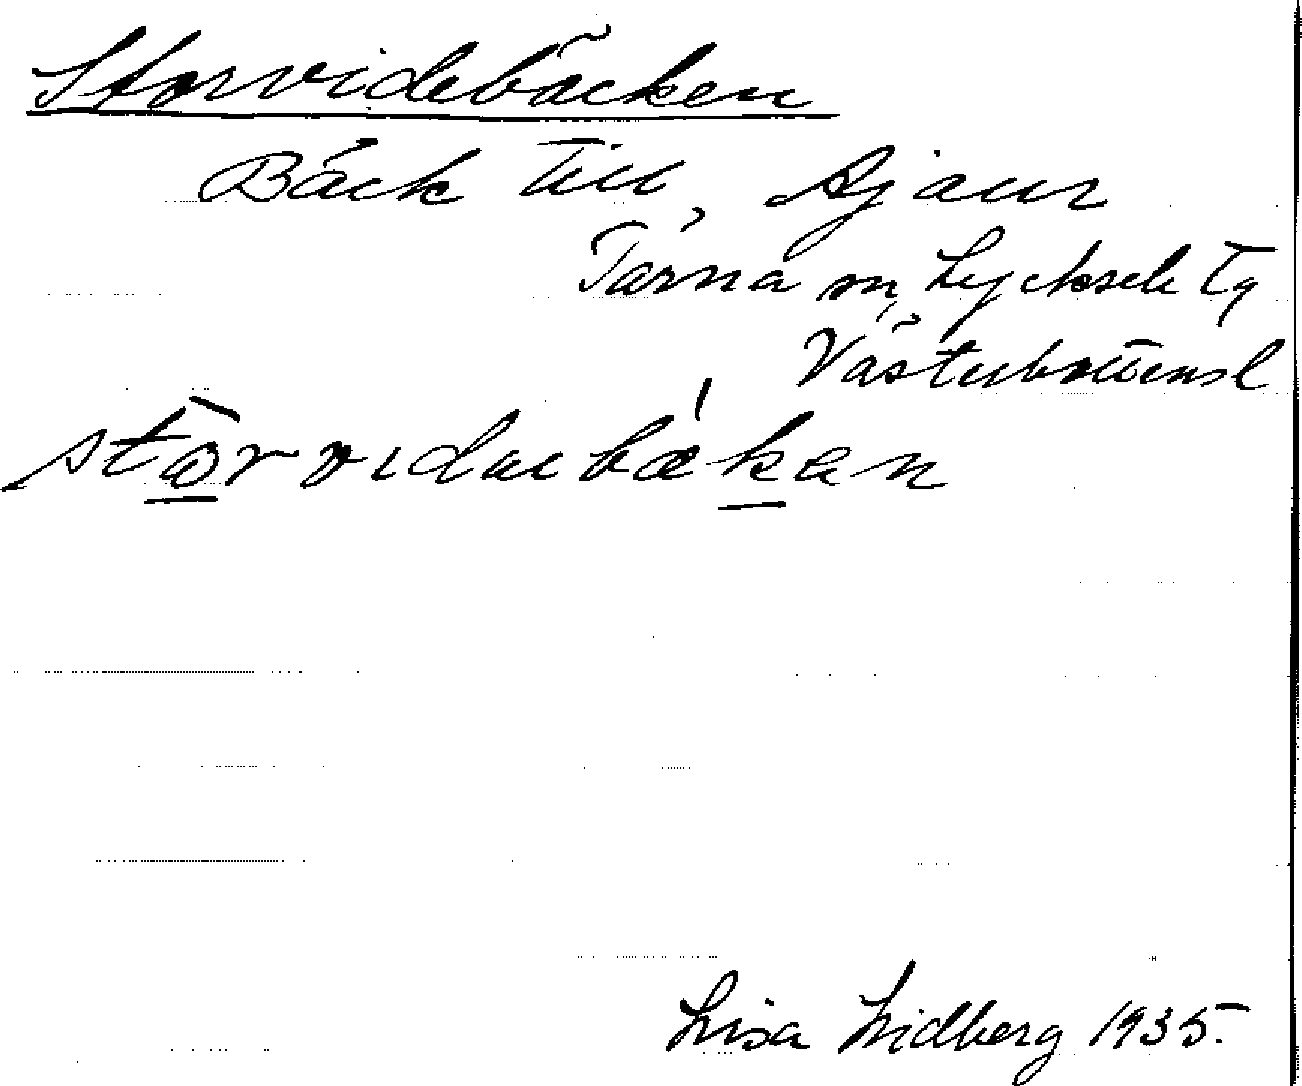 Storvidebäcken
Bäck till Ajaur
Tärna sn, Lycksele Tg
Västerbottensl
stòrvidæbækan
Lisa Lidberg 1935.